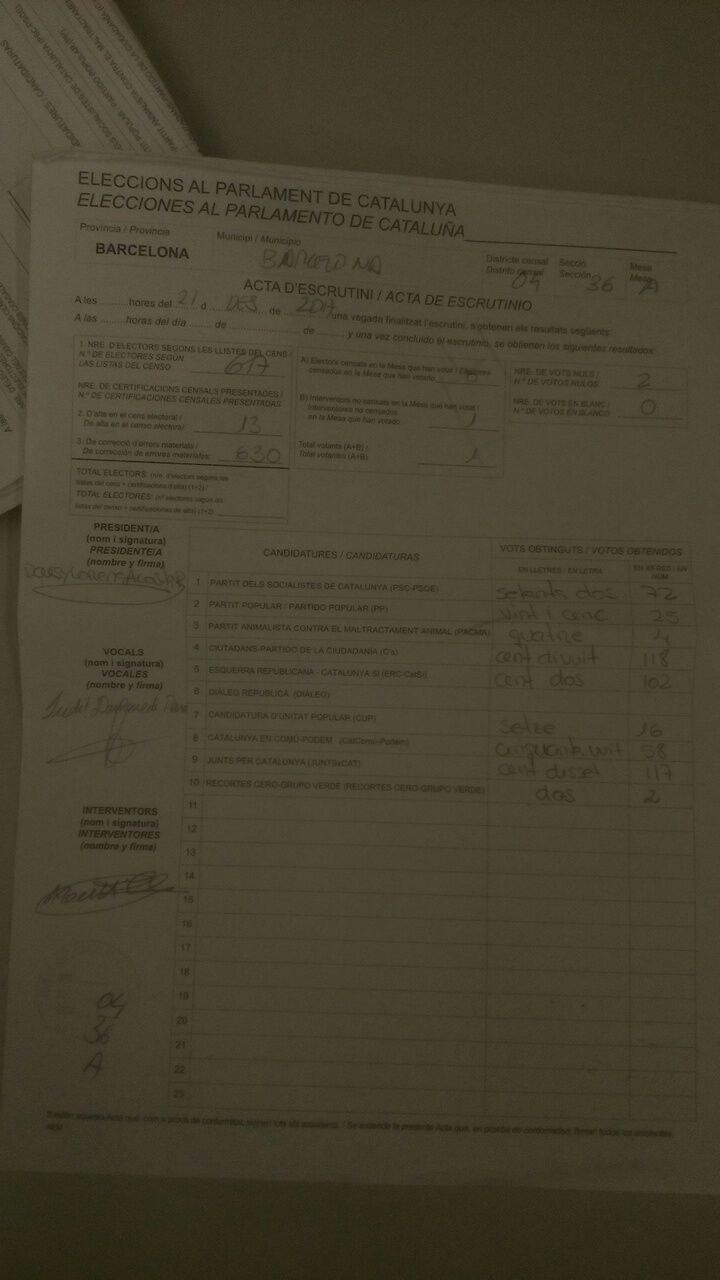 ELECCIONS AL PARLAMENT DE CATALUNYA
ELECCIONES AL PARLAMENTO DE CATALUÑA
Província / Provincia
BARCELONA
Municipi / Municipio
BARCELONA
Districte censal
Distrito censal
04
Secció
Sección
36
Mesa
Mesa
A
ACTA D'ESCRUTINI / ACTA DE ESCRUTINIO
A les ......... hores del 21 d DES de 2017 una vegada finalitzat l'escrutini, s'obtenen els resultats següents:
A las ......... horas del día ...... de ............ de ........ y una vez concluido el escrutinio, se obtienen los siguientes resultados:
1. NRE. D'ELECTORS SEGONS LES LLISTES DEL CENS /
N.º DE ELECTORES SEGÚN
LAS LISTAS DEL CENSO
617
NRE. DE CERTIFICACIONS CENSALS PRESENTADES /
N.º DE CERTIFICACIONES CENSALES PRESENTADAS
2. D'alta en el cens electoral /
De alta en el censo electoral
13
3. De correcció d'errors materials /
De corrección de errores materiales:
630
TOTAL ELECTORS: (nre. d'electors segons les
llistes del cens + certificacions d'alta) (1+2) /
TOTAL ELECTORES: (nº electores según las
listas del censo + certificaciones de alta) (1+2)
A) Electors censats en la Mesa que han votat / Electores
censados en la Mesa que han votado
B) Interventors no censats en la Mesa que han votat /
Interventores no censados
en la Mesa que han votado
1
Total votants (A+B) /
Total votantes (A+B)
1
NRE. DE VOTS NULS /
N.º DE VOTOS NULOS
2
NRE. DE VOTS EN BLANC /
N.º DE VOTOS EN BLANCO
0
PRESIDENT/A
(nom i signatura)
PRESIDENTE/A
(nombre y firma)
VOCALS
(nom i signatura)
VOCALES
(nombre y firma)
INTERVENTORS
(nom i signatura)
INTERVENTORES
(nombre y firma)
04
36
A
CANDIDATURES / CANDIDATURAS
VOTS OBTINGUTS / VOTOS OBTENIDOS
EN LLETRES / EN LETRA
EN XIFRES / EN NÚM
1 PARTIT DELS SOCIALISTES DE CATALUNYA (PSC-PSOE) setanta dos 72
2 PARTIT POPULAR / PARTIDO POPULAR (PP) vint i cinc 25
3 PARTIT ANIMALISTA CONTRA EL MALTRACTAMENT ANIMAL (PACMA) quatre 4
4 CIUTADANS-PARTIDO DE LA CIUDADANÍA (C's) cent divuit 118
5 ESQUERRA REPUBLICANA - CATALUNYA SÍ (ERC-CatSí) cent dos 102
6 DIÀLEG REPUBLICÀ (DIÀLEG)
7 CANDIDATURA D'UNITAT POPULAR (CUP) setze 16
8 CATALUNYA EN COMÚ-PODEM (CatComú-Podem) cinquanta vuit 58
9 JUNTS PER CATALUNYA (JUNTSxCAT) cent disset 117
10 RECORTES CERO-GRUPO VERDE (RECORTES CERO-GRUPO VERDE) dos 2
11
12
13
14
15
16
17
18
19
20
21
22
23